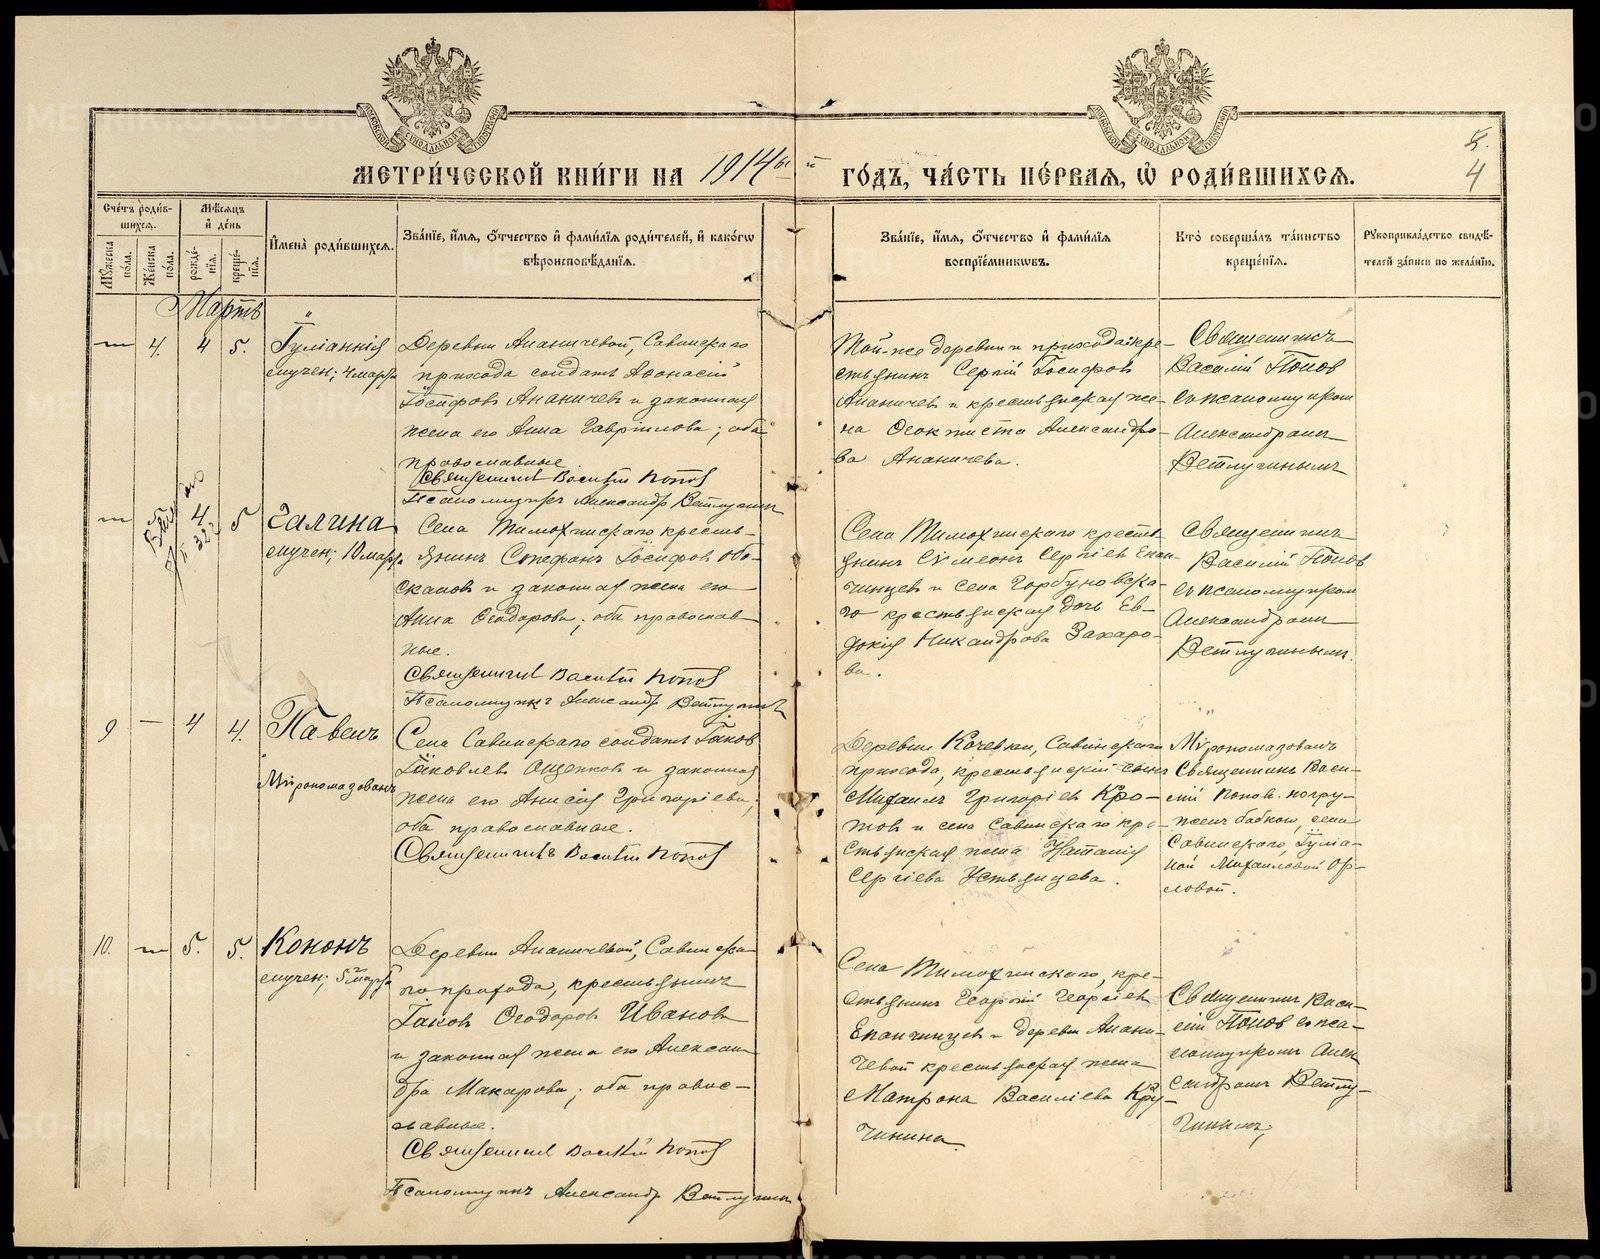 МЕТРИ́ЧЕСКОЙ КНИ́ГИ НА 1914ый ГО́ДЪ, ЧА́СТЬ ПЕ́РВАЯ, Ѡ҆ РОДИ́ВШИХСЯ.
5.
4
Сче́тъ роди́в-
шихся.
Му́жеска по́ла.
Же́нска по́ла.
Мѣ́сяцъ
и҆ де́нь
рожде́нїя.
креще́нїя.
И҆мена̀ роди́вшихся.
Зва́нїе, и҆́мя, ѻ҆́тчество и҆ фами́лїя роди́телей, и҆ како́гѡ
вѣроисповѣ́данїя.
Зва́нїе, и҆́мя, ѻ҆́тчество и҆ фами́лїя
воспрїе́мникѡвъ.
Кто̀ соверша́лъ та́инство
креще́нїя.
Рꙋкоприкла́дство свидѣ́-
телей за́писи по жела́нїю.
Мартъ
— 4. 4 5.
Іуліанія
мучен; 4 марта
Деревни Ананичевой, Савинскаго
прихода солдатъ Аѳанасій
Іосифовъ Ананичевъ и законная
жена его Анна Гавріилова; оба
православные.
Священникъ Василій Поповъ
Псаломщикъ Александръ Ветлугинъ
Той-же деревни и прихода кре-
стьянинъ Сергій Іосифовъ
Ананичевъ и крестьянская же-
на Ѳеоктиста Александро-
ва Ананичева.
Священникъ
Василій Поповъ
съ псаломщикомъ
Александромъ
Ветлугинымъ
— 5 4 5
Галина
мучен; 10 марта
Села Тимохинскаго кресть-
янинъ Стефанъ Іосифовъ Обо-
скаловъ и законная жена его
Анна Ѳеодорова; оба православ-
ные.
Священникъ Василій Поповъ
Псаломщикъ Александръ Ветлугинъ
Села Тимохинскаго кресть-
янинъ Сѵмеонъ Сергіевъ Епан-
чинцевъ и села Горбуновска-
го крестьянская дочь Ев-
докія Никандрова Захаро-
ва.
Священникъ
Василій Поповъ
съ псаломщикомъ
Александромъ
Ветлугинымъ.
9 — 4 4.
Павелъ
Мѵропомазованъ
Села Савинскаго солдатъ Іаковъ
Іаковлевъ Ощепковъ и законная
жена его Анисія Григоріева;
оба православные.
Священникъ Василій Поповъ
Деревни Кочевки, Савинскаго
прихода, крестьянскій сынъ
Михаилъ Григоріевъ Кро-
товъ и села Савинскаго кре-
стьянская жена Наталія
Сергіева Устьянцева.
Мѵропомазованъ
Священникъ Васи-
лій Поповъ. погру-
женъ бабкою, села
Савинскаго, Іулiа-
ніей Михаиловой Ор-
ловой.
10. — 5. 5.
Кононъ
мучен; 5го марта
Деревни Ананичевой, Савинска-
го прихода, крестьянинъ
Іаковъ Ѳеодоровъ Ивановъ
и законная жена его Алексан-
дра Макарова; оба правос-
лавные.
Священникъ Василій Поповъ
Псаломщикъ Александръ Ветлугинъ
Села Тимохинскаго, кре-
стьянинъ Георгій Георгіевъ
Епанчинцевъ и деревни Анани-
чевой крестьянская жена
Матрона Василіева Кру-
чинина.
Священникъ Васи-
лій Поповъ съ пса-
ломщикомъ Алек-
сандромъ Ветлу-
гинымъ,